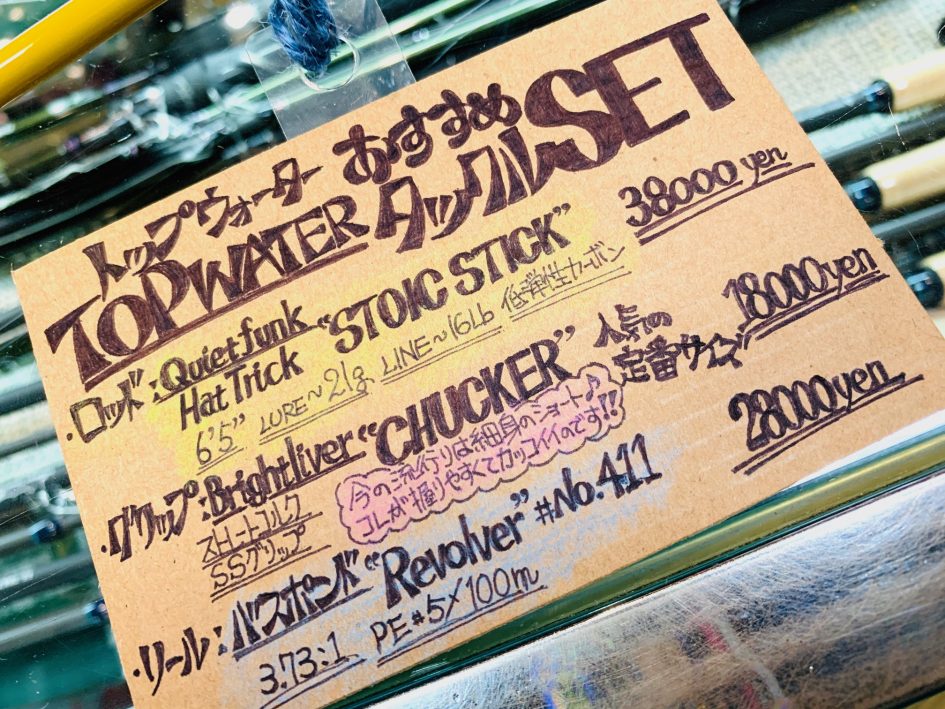 トップウォーター おすすめ
TOPWATER タックルSET
・ロッド：Quietfunk "STOIC STICK" 38000yen
Hat Trick
6'5" LURE~21g. LINE~16Lb 低弾性カーボン
・グリップ：Brightliver "CHUCKER" 人気の定番サイズ 18000yen
ストレートコルク
SSグリップ
今の流行りは細身のショート♪
コレが握りやすくてカッコイイのです!!
・リール：バスポンド "Revolver" #No.411 28000yen
3.73:1 PE#5/100m